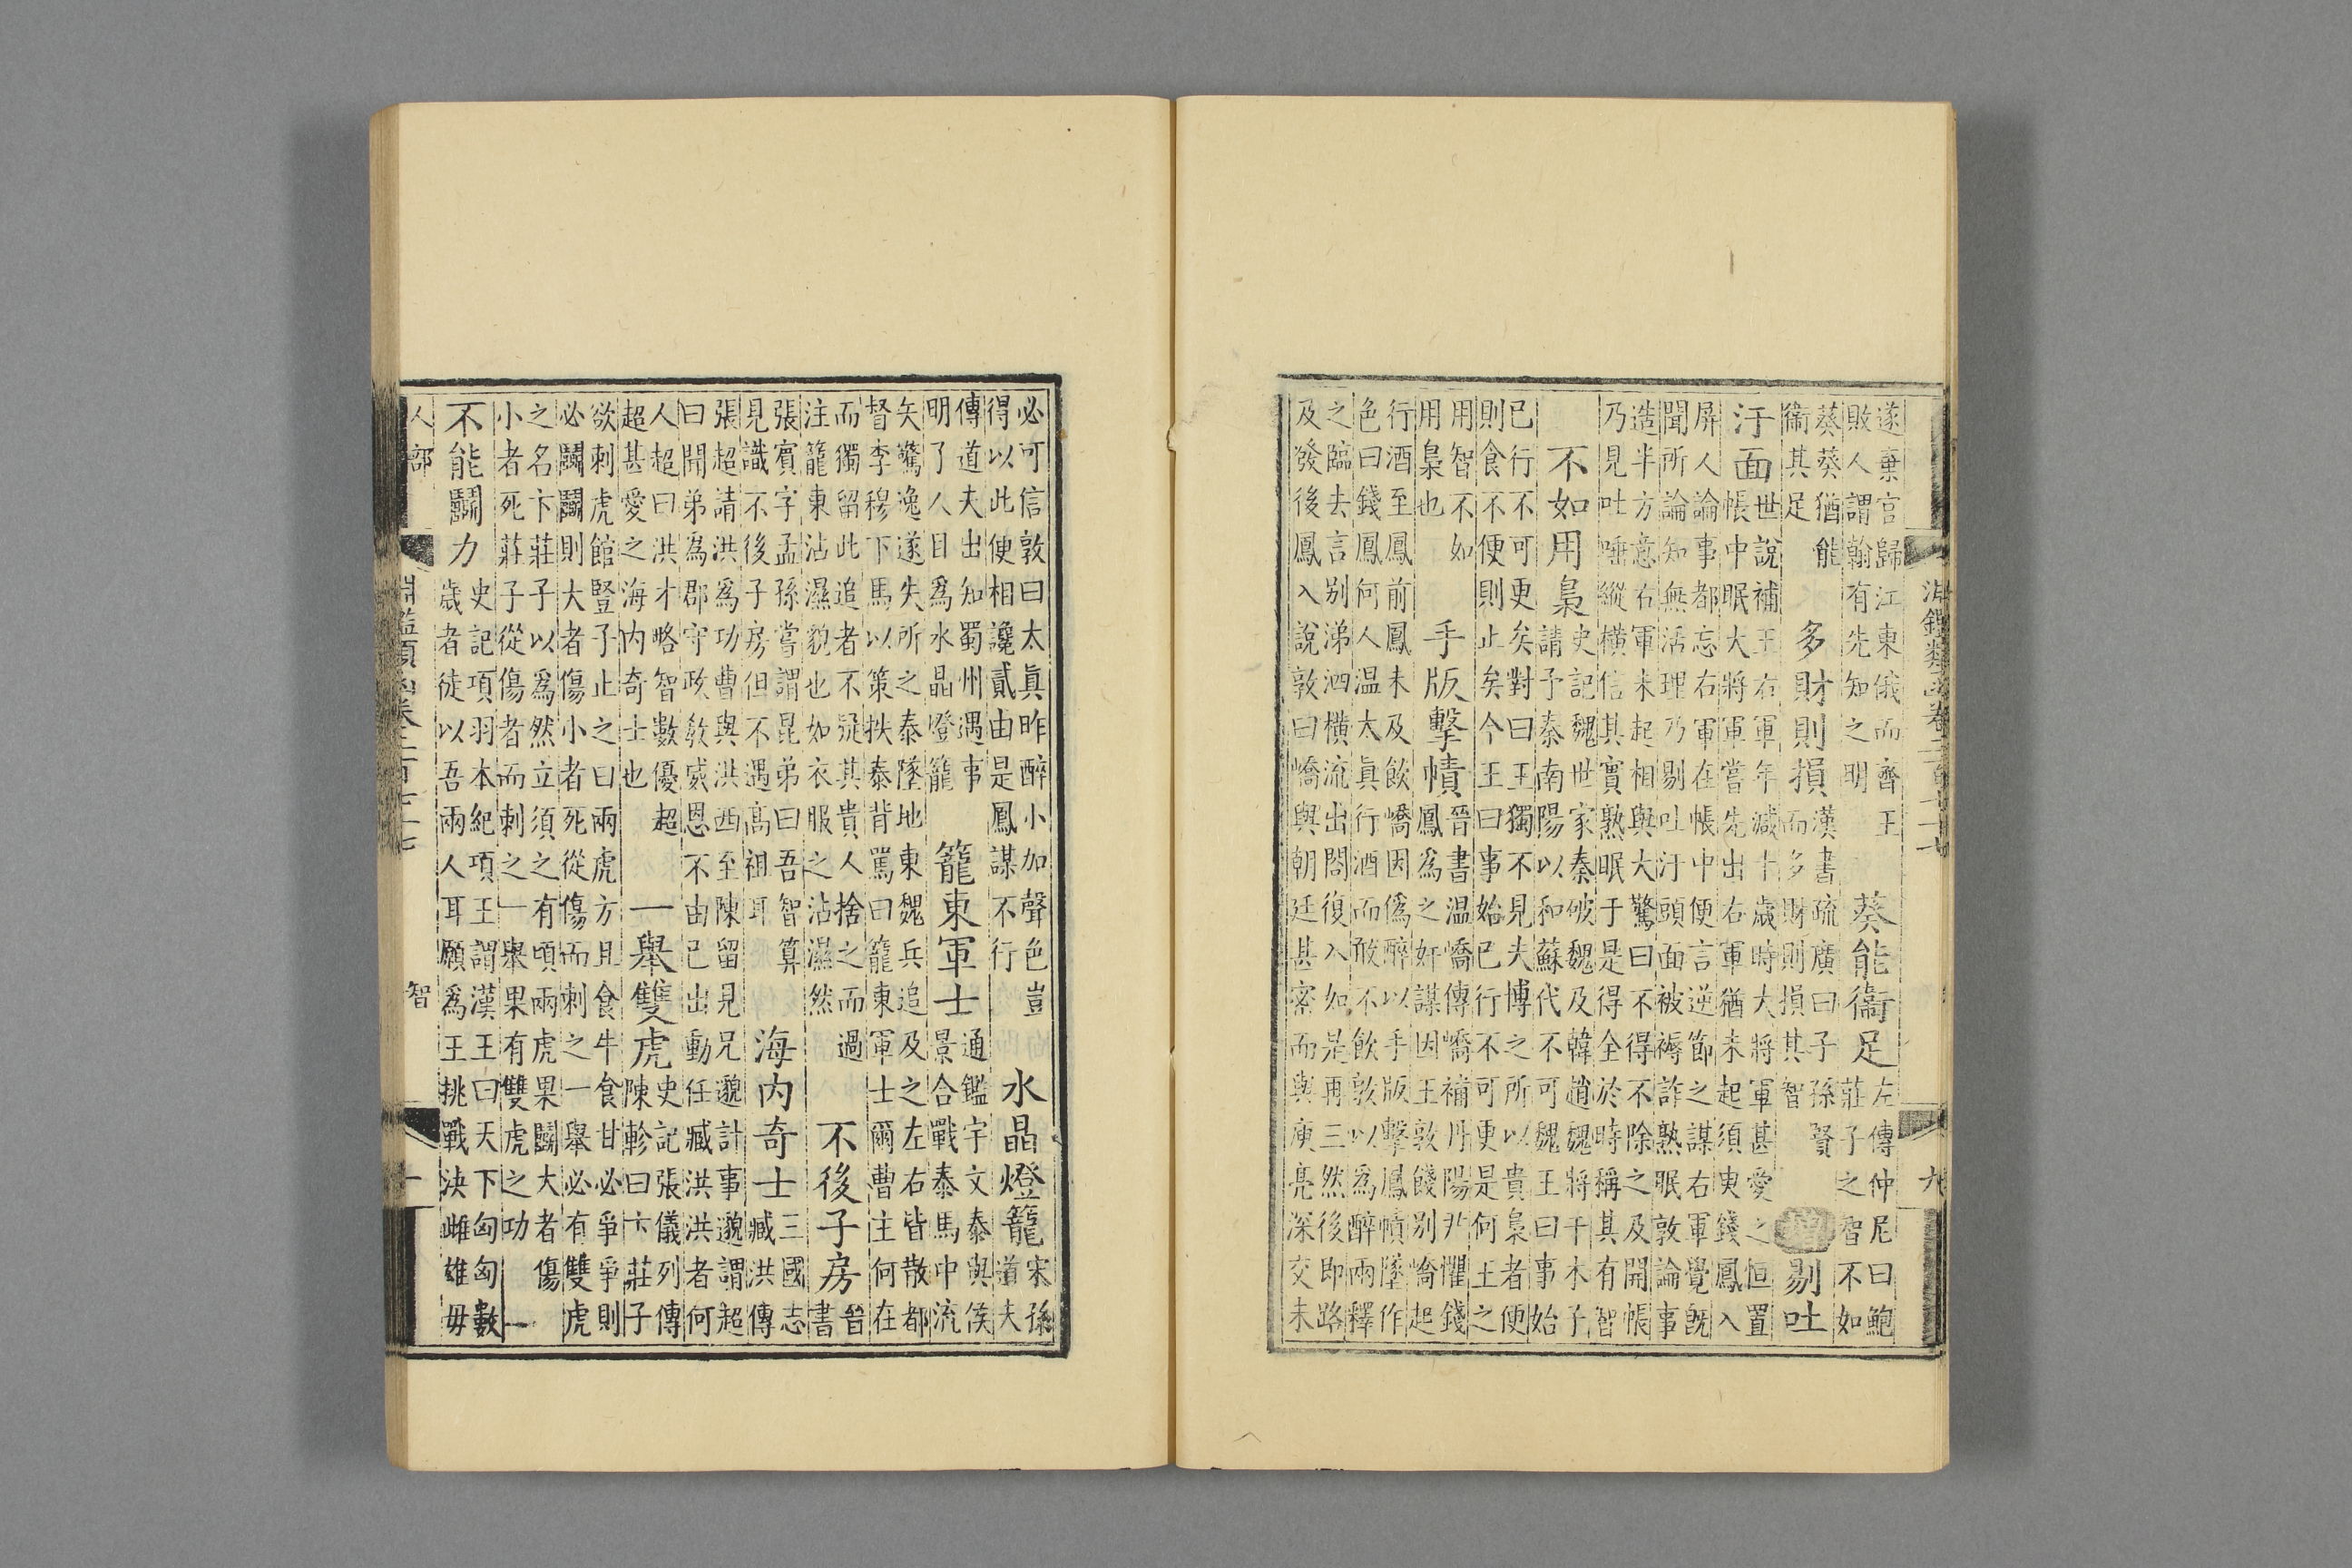 淵鑑類函卷二百七十七　九
遂棄官歸江東俄而齊王
敗人謂翰有先知之明
葵能衞足
左傳仲尼曰鮑
莊子之智不如
葵葵猶能
衞其足
多財則損
漢書疏廣曰子孫賢
而多財則損其智
增
剔吐
汙面
世說補王右軍年減十歲時大將軍甚愛之恒置
帳中眠大將軍嘗先出右軍猶未起須臾錢鳳入
屏人論事都忘右軍在帳中便言逆節之謀右軍覺旣
聞所論知無活理乃剔吐汙頭面被褥詐熟眠敦論事
造半方意右軍未起相與大驚曰不得不除之及開帳
乃見吐唾縱橫信其實熟眠于是得全於時稱其有智
不如用梟
史記魏世家秦破魏及韓趙魏將干木子
請予秦南陽以和蘇代不可魏王曰事始
已行不可更矣對曰王獨不見夫博之所以貴梟者便
則食不便則止矣今王曰事始已行不可更是何王之
用智不如
用梟也
手版擊幘
晉書温嶠傳嶠補丹陽尹懼錢
鳳爲之奸謀因王敦餞別嶠起
行酒至鳳前鳳未及飲嶠因僞醉以手版擊鳳幘墜作
色曰錢鳳何人温太眞行酒而敢不飲敦以爲醉兩釋
之臨去言别涕泗橫流出閤復入如是再三然後即路
及發後鳳入說敦曰嶠與朝廷甚密而與庾亮深交未
必可信敦曰太眞昨醉小加聲色豈
得以此便相讒貳由是鳳謀不行
水晶燈籠
宋孫
道夫
傳道夫出知蜀州遇事
明了人目爲水晶燈籠
籠東軍士
通鑑宇文泰與侯
景合戰泰馬中流
矢驚逸遂失所之泰墜地東魏兵追及之左右皆散都
督李穆下馬以策抶泰背罵曰籠東軍士爾曹主何在
而獨留此追者不疑其貴人捨之而過
注籠東沾濕貌也如衣服之沾濕然
不後子房
晉
書
張賓字孟孫嘗謂昆弟曰吾智算
見識不後子房但不遇高祖耳
海内奇士
三國志
臧洪傳
張超請洪爲功曹與洪西至陳留見兄邈計事邈謂超
曰聞弟爲郡守政敎威恩不由己出動任臧洪洪者何
人超曰洪才略智數優超
超甚愛之海内奇士也
一舉雙虎
史記張儀列傳
陳軫曰卞莊子
欲刺虎館豎子止之曰兩虎方且食牛食甘必爭爭則
必鬭鬭則大者傷小者死從傷而刺之一舉必有雙虎
之名卞莊子以爲然立須之有頃兩虎果鬭大者傷
小者死莊子從傷者而刺之一舉果有雙虎之功
一
不能鬭力
史記項羽本紀項王謂漢王曰天下匈匈數
歲者徒以吾兩人耳願爲王挑戰決雌雄毋
人部　淵鑑類函卷二百七十七　智　十